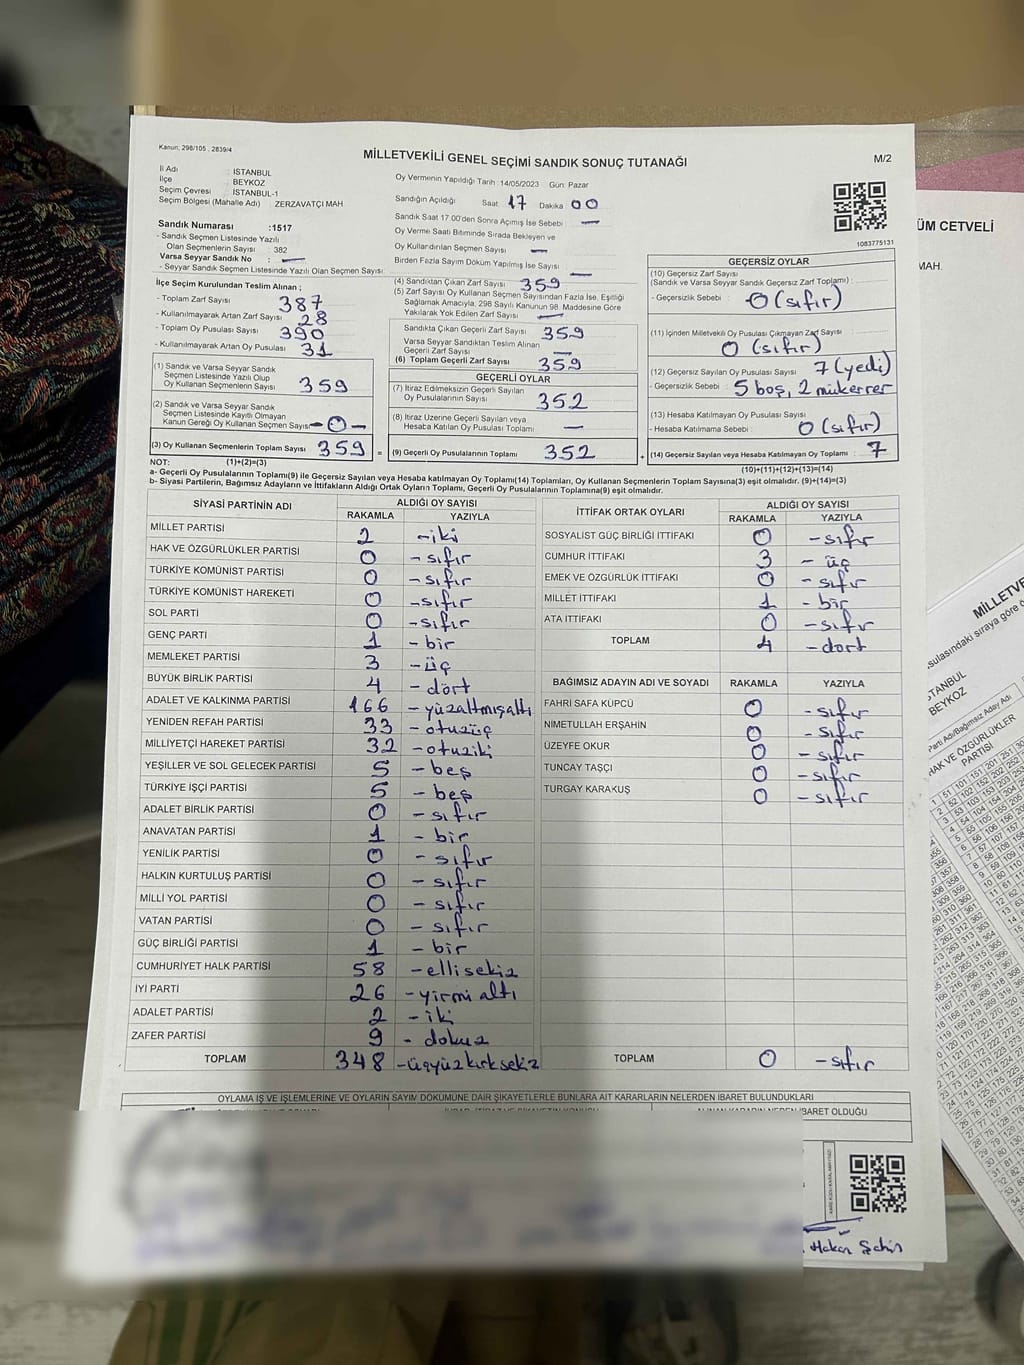 Kanun; 298/105 , 2839/4
MİLLETVEKİLİ GENEL SEÇİMİ SANDIK SONUÇ TUTANAĞI
M/2
İl Adı : İSTANBUL
İlçe : BEYKOZ
Seçim Çevresi : İSTANBUL-1
Seçim Bölgesi (Mahalle Adı) : ZERZAVATÇI MAH.
Oy Vermenin Yapıldığı Tarih : 14/05/2023 Gün: Pazar
Sandığın Açıldığı Saat 17 Dakika 00
Sandık Saat 17.00'den Sonra Açımış İse Sebebi : —
Oy Verme Saati Bitiminde Sırada Bekleyen ve
Oy Kullandırılan Seçmen Sayısı : —
Birden Fazla Sayım Döküm Yapılmış İse Sayısı : —
1083775131
Sandık Numarası :1517
- Sandık Seçmen Listesinde Yazılı
Olan Seçmenlerin Sayısı : 382
Varsa Seyyar Sandık No : —
- Seyyar Sandık Seçmen Listesinde Yazılı Olan Seçmen Sayısı:
İlçe Seçim Kurulundan Teslim Alınan ;
- Toplam Zarf Sayısı : 387
- Kullanılmayarak Artan Zarf Sayısı : 28
- Toplam Oy Pusulası Sayısı : 390
- Kullanılmayarak Artan Oy Pusulası : 31
(1) Sandık ve Varsa Seyyar Sandık
Seçmen Listesinde Yazılı Olup
Oy Kullanan Seçmenlerin Sayısı : 359
(2) Sandık ve Varsa Seyyar Sandık
Seçmen Listesinde Kayıtlı Olmayan
Kanun Gereği Oy Kullanan Seçmen Sayısı: — 0 —
(3) Oy Kullanan Seçmenlerin Toplam Sayısı 359 =
(4) Sandıktan Çıkan Zarf Sayısı : 359
(5) Zarf Sayısı Oy Kullanan Seçmen Sayısından Fazla İse, Eşitliği
Sağlamak Amacıyla, 298 Sayılı Kanunun 98. Maddesine Göre
Yakılarak Yok Edilen Zarf Sayısı : —
Sandıkta Çıkan Geçerli Zarf Sayısı : 359
Varsa Seyyar Sandıktan Teslim Alınan
Geçerli Zarf Sayısı : —
(6) Toplam Geçerli Zarf Sayısı : 359
GEÇERLİ OYLAR
(7) İtiraz Edilmeksizin Geçerli Sayılan
Oy Pusulalarının Sayısı : 352
(8) İtiraz Üzerine Geçerli Sayılan veya
Hesaba Katılan Oy Pusulası Toplamı : —
(9) Geçerli Oy Pusulalarının Toplamı : 352 +
GEÇERSİZ OYLAR
(10) Geçersiz Zarf Sayısı
(Sandık ve Varsa Seyyar Sandık Geçersiz Zarf Toplamı) :
- Geçersizlik Sebebi : 0 (sıfır)
(11) İçinden Milletvekili Oy Pusulası Çıkmayan Zarf Sayısı :
0 (sıfır)
(12) Geçersiz Sayılan Oy Pusulası Sayısı : 7 (yedi)
- Geçersizlik Sebebi : 5 boş, 2 mükerrer
(13) Hesaba Katılmayan Oy Pusulası Sayısı :
- Hesaba Katılmama Sebebi : 0 (sıfır)
(14) Geçersiz Sayılan veya Hesaba Katılmayan Oy Toplamı : 7
NOT: (1)+(2)=(3)
(10)+(11)+(12)+(13)=(14)
a- Geçerli Oy Pusulalarının Toplamı(9) ile Geçersiz Sayılan veya Hesaba katılmayan Oy Toplamı(14) Toplamları, Oy Kullanan Seçmenlerin Toplam Sayısına(3) eşit olmalıdır. (9)+(14)=(3)
b- Siyasi Partilerin, Bağımsız Adayların ve İttifakların Aldığı Ortak Oyların Toplamı, Geçerli Oy Pusulalarının Toplamına(9) eşit olmalıdır.
SİYASİ PARTİNİN ADI ALDIĞI OY SAYISI
RAKAMLA YAZIYLA
MİLLET PARTİSİ 2 -iki
HAK VE ÖZGÜRLÜKLER PARTİSİ 0 -sıfır
TÜRKİYE KOMÜNİST PARTİSİ 0 -sıfır
TÜRKİYE KOMÜNİST HAREKETİ 0 -sıfır
SOL PARTİ 0 -sıfır
GENÇ PARTİ 1 -bir
MEMLEKET PARTİSİ 3 -üç
BÜYÜK BİRLİK PARTİSİ 4 -dört
ADALET VE KALKINMA PARTİSİ 166 -yüzaltmışaltı
YENİDEN REFAH PARTİSİ 33 -otuzüç
MİLLİYETÇİ HAREKET PARTİSİ 32 -otuziki
YEŞİLLER VE SOL GELECEK PARTİSİ 5 -beş
TÜRKİYE İŞÇİ PARTİSİ 5 -beş
ADALET BİRLİK PARTİSİ 0 -sıfır
ANAVATAN PARTİSİ 1 -bir
YENİLİK PARTİSİ 0 -sıfır
HALKIN KURTULUŞ PARTİSİ 0 -sıfır
MİLLİ YOL PARTİSİ 0 -sıfır
VATAN PARTİSİ 0 -sıfır
GÜÇ BİRLİĞİ PARTİSİ 1 -bir
CUMHURİYET HALK PARTİSİ 58 -ellisekiz
İYİ PARTİ 26 -yirmi altı
ADALET PARTİSİ 2 -iki
ZAFER PARTİSİ 9 - dokuz
TOPLAM 348 -üçyüzkırksekiz
İTTİFAK ORTAK OYLARI ALDIĞI OY SAYISI
RAKAMLA YAZIYLA
SOSYALİST GÜÇ BİRLİĞİ İTTİFAKI 0 -sıfır
CUMHUR İTTİFAKI 3 - üç
EMEK VE ÖZGÜRLÜK İTTİFAKI 0 -sıfır
MİLLET İTTİFAKI 1 - bir
ATA İTTİFAKI 0 -sıfır
TOPLAM 4 -dort
BAĞIMSIZ ADAYIN ADI VE SOYADI RAKAMLA YAZIYLA
FAHRİ SAFA KÜPCÜ 0 -sıfır
NİMETULLAH ERŞAHİN 0 -sıfır
ÜZEYFE OKUR 0 -sıfır
TUNCAY TAŞÇI 0 -sıfır
TURGAY KARAKUŞ 0 -sıfır
TOPLAM 0 -sıfır
OYLAMA İŞ VE İŞLEMLERİNE VE OYLARIN SAYIM DÖKÜMÜNE DAİR ŞİKAYETLERLE BUNLARA AİT KARARLARIN NELERDEN İBARET BULUNDUKLARI
İBARET OLDUĞU
Hakan Şahin
ÜM CETVELİ
MAH.
MİLLETVE
sulasındaki sıraya göre
STANBUL
BEYKOZ
Parti Adı/Bağımsız Aday Adı
HAK VE ÖZGÜRLÜKLER
PARTİSİ